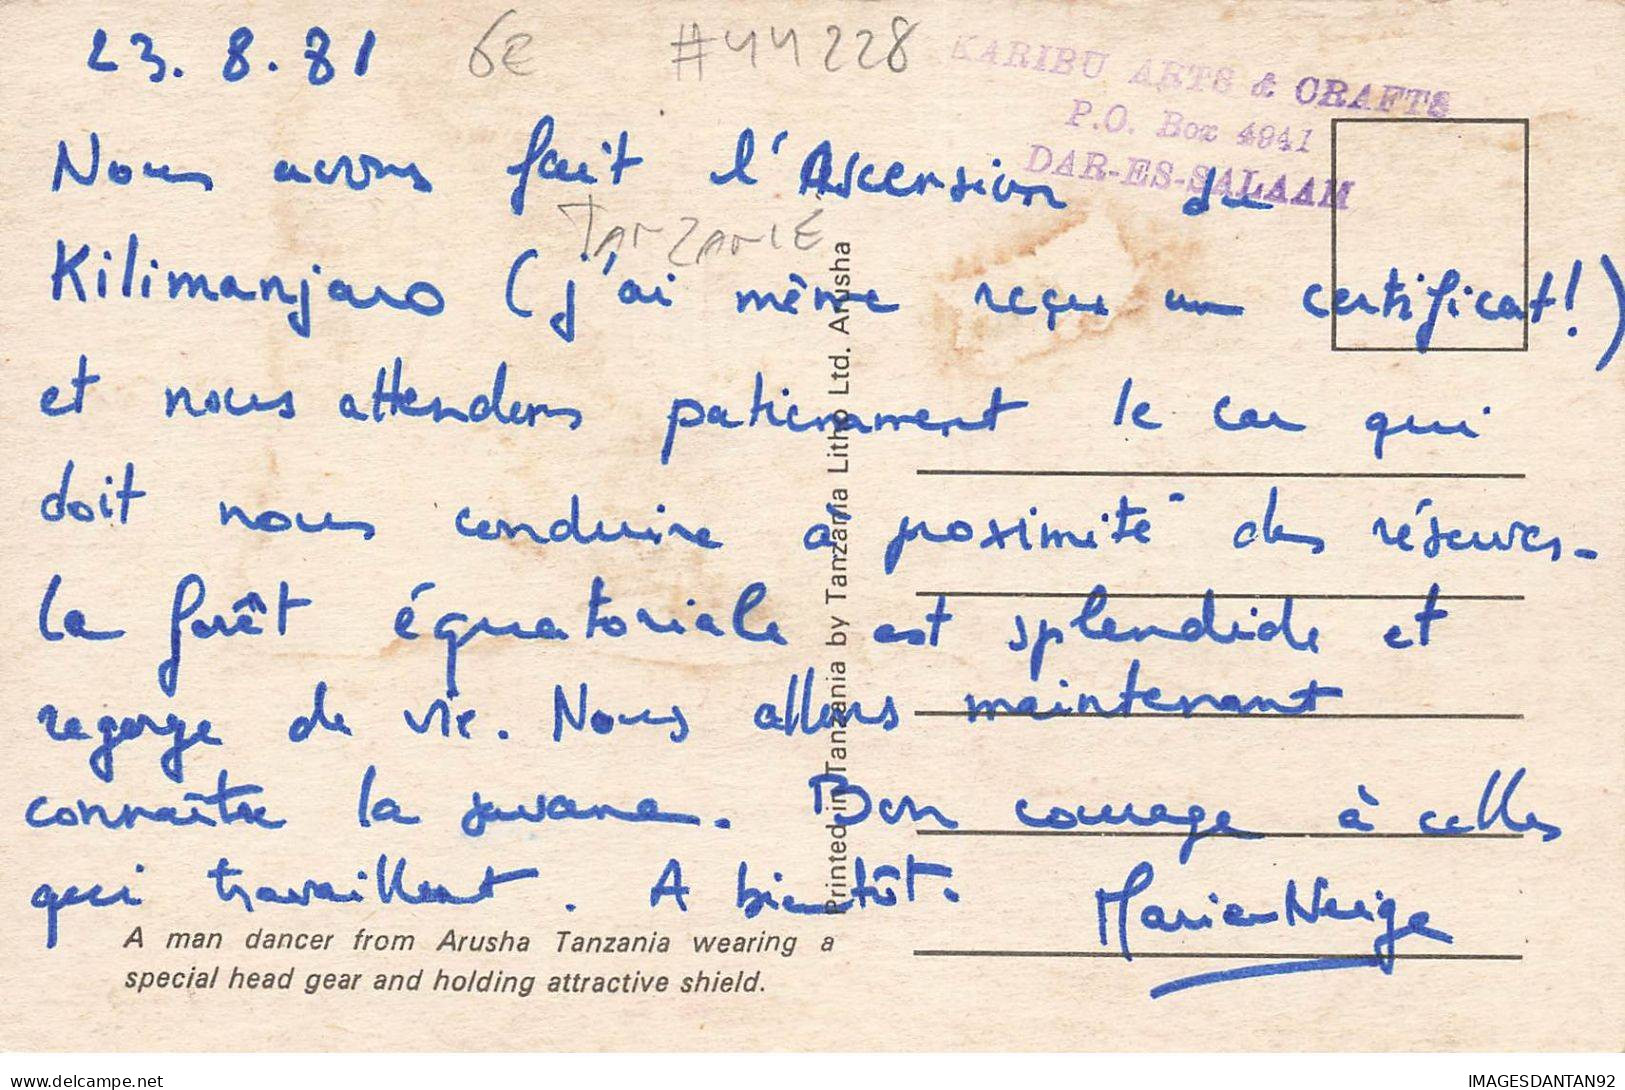 23.8.81 6€ #44228
KARIBU ARTS & CRAFTS
P.O. Box 4941
DAR-ES-SALAAM
Nous avons fait l'Ascension du
TANZANIE
Kilimanjaro (j'ai même reçu un certificat!)
et nous attendons patiemment le car qui
doit nous conduire à proximité des réserves.
la forêt équatoriale est splendide et
regorge de vie. Nous allons maintenant
connaître la savane. Bon courage à celles
qui travaillent. A bientôt.
Marie Neige
Printed in Tanzania by Tanzania Litho Ltd. Arusha
A man dancer from Arusha Tanzania wearing a
special head gear and holding attractive shield.
IMAGESDANTAN92
delcampe.net